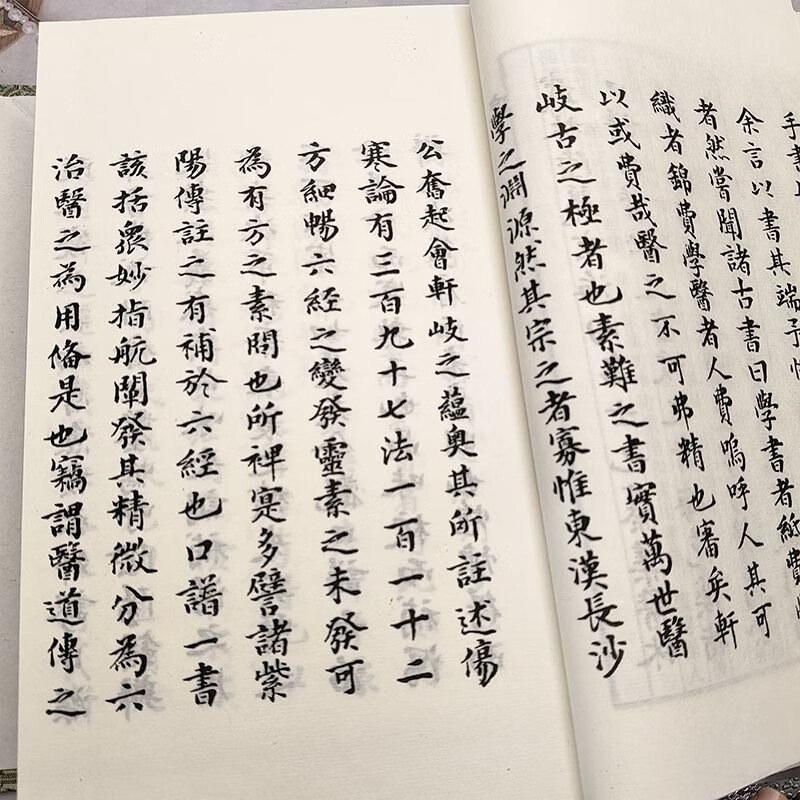 手書上
余言以書其端予惟
者然嘗聞諸古書曰學書者紙費
織者錦費學醫者人費嗚呼人其可
以或費哉醫之不可弗精也審矣軒
岐古之極者也素難之書實萬世醫
學之淵源然其宗之者寡惟東漢長沙
公奮起會軒岐之蘊奥其所註述傷
寒論有三百九十七法一百一十二
方細暢六經之變發靈素之未發可
為有方之素問也所裨寔多譬諸紫
陽傳註之有補於六經也口譜一書
該括衆妙指航闡發其精微分為六
治醫之為用俻是也竊謂醫道傳之